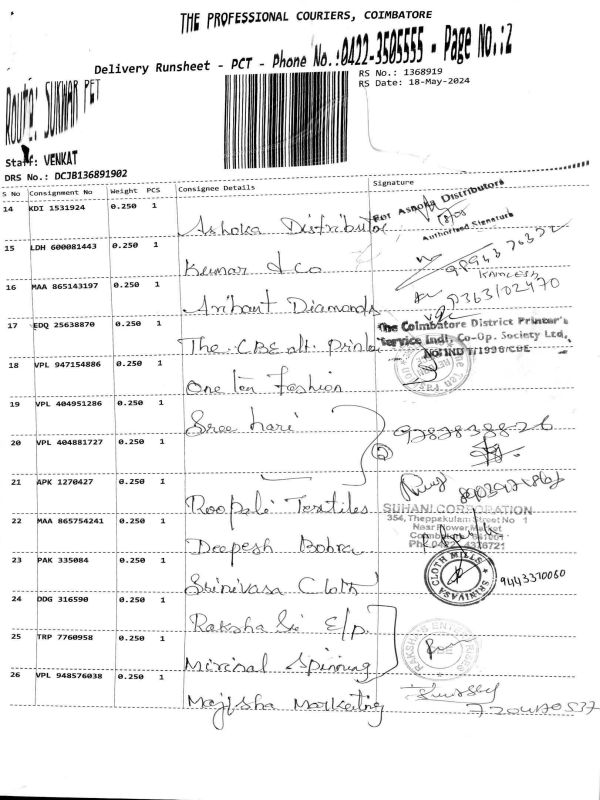 THE PROFESSIONAL COURIERS, COIMBATORE
Delivery Runsheet - PCT - Phone No.:0422-3505555 - Page No.:2
RS No.: 1368919
RS Date: 18-May-2024
Route: SUKWAR PET
Staff: VENKAT
DRS No.: DCJB136891902
S No Consignment No Weight PCS Consignee Details Signature
14 KDI 1531924 0.250 1 Ashoka Distributor
For Ashoka Distributors
Authorised Signature
15 LDH 600081443 0.250 1 Kumar & Co
16 MAA 865143197 0.250 1 Arihant Diamonds KAMLESH 9363102470
17 EDQ 25638870 0.250 1 The CBE dt. Printer
The Coimbatore District Printer's
Service Indl. Co-Op. Society Ltd,
No: IND T/1996/CBE
18 VPL 947154886 0.250 1 One Ten Fashion
19 VPL 404951286 0.250 1 Sree hari
20 VPL 404881727 0.250 1 2
21 APK 1270427 0.250 1 Roopali Textiles
22 MAA 865754241 0.250 1 Deepesh Bohra
SUHANI CORPORATION
354, Theppakulam Street No 1
Near Flower Market
Coimbatore 641001
23 PAK 335084 0.250 1 Srinivasa Cloth
SRINIVASA CLOTH MILLS
9443310060
24 DDG 316590 0.250 1 Raksha Sri E/p.
25 TRP 7760958 0.250 1 Spinning
26 VPL 948576038 0.250 1 Marketing